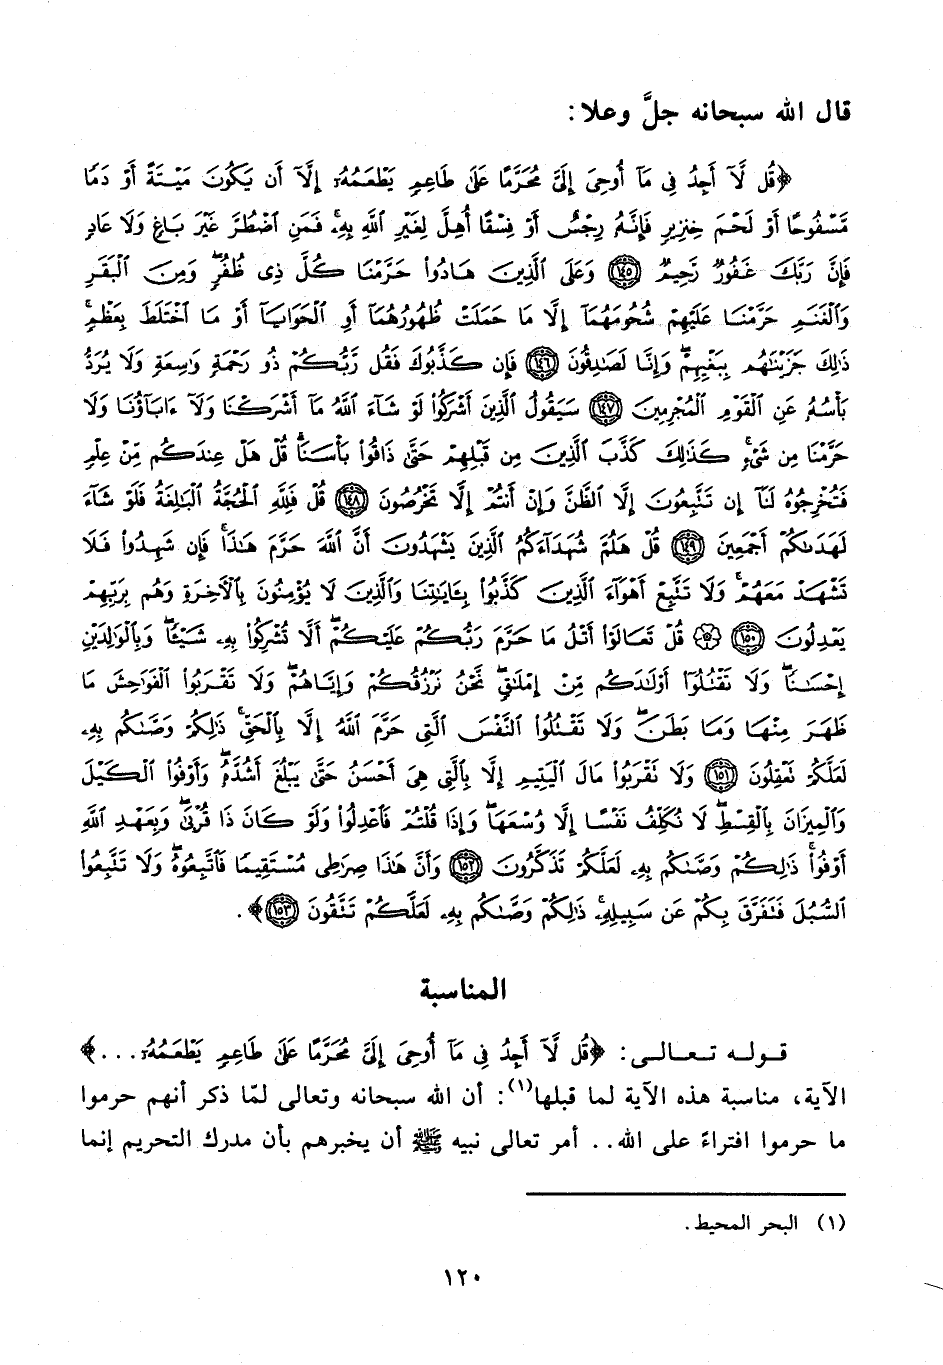 قال الله سبحانه جلَّ وعلا:
﴿قُل لَّآ أَجِدُ فِى مَآ أُوحِىَ إِلَىَّ مُحَرَّمًا عَلَىٰ طَاعِمٍ يَطْعَمُهُۥٓ إِلَّآ أَن يَكُونَ مَيْتَةً أَوْ دَمًا
مَّسْفُوحًا أَوْ لَحْمَ خِنزِيرٍ فَإِنَّهُۥ رِجْسٌ أَوْ فِسْقًا أُهِلَّ لِغَيْرِ ٱللَّهِ بِهِۦۚ فَمَنِ ٱضْطُرَّ غَيْرَ بَاغٍ وَلَا عَادٍ
فَإِنَّ رَبَّكَ غَفُورٌ رَّحِيمٌ ١٤٥ وَعَلَى ٱلَّذِينَ هَادُوا۟ حَرَّمْنَا كُلَّ ذِى ظُفُرٍۖ وَمِنَ ٱلْبَقَرِ
وَٱلْغَنَمِ حَرَّمْنَا عَلَيْهِمْ شُحُومَهُمَآ إِلَّا مَا حَمَلَتْ ظُهُورُهُمَآ أَوِ ٱلْحَوَايَآ أَوْ مَا ٱخْتَلَطَ بِعَظْمٍۚ
ذَٰلِكَ جَزَيْنَٰهُم بِبَغْيِهِمْۖ وَإِنَّا لَصَٰدِقُونَ ١٤٦ فَإِن كَذَّبُوكَ فَقُل رَّبُّكُمْ ذُو رَحْمَةٍ وَٰسِعَةٍ وَلَا يُرَدُّ
بَأْسُهُۥ عَنِ ٱلْقَوْمِ ٱلْمُجْرِمِينَ ١٤٧ سَيَقُولُ ٱلَّذِينَ أَشْرَكُوا۟ لَوْ شَآءَ ٱللَّهُ مَآ أَشْرَكْنَا وَلَآ ءَابَآؤُنَا وَلَا
حَرَّمْنَا مِن شَىْءٍۚ كَذَٰلِكَ كَذَّبَ ٱلَّذِينَ مِن قَبْلِهِمْ حَتَّىٰ ذَاقُوا۟ بَأْسَنَاۗ قُلْ هَلْ عِندَكُم مِّنْ عِلْمٍ
فَتُخْرِجُوهُ لَنَآ إِن تَتَّبِعُونَ إِلَّا ٱلظَّنَّ وَإِنْ أَنتُمْ إِلَّا تَخْرُصُونَ ١٤٨ قُلْ فَلِلَّهِ ٱلْحُجَّةُ ٱلْبَٰلِغَةُ فَلَوْ شَآءَ
لَهَدَىٰكُمْ أَجْمَعِينَ ١٤٩ قُلْ هَلُمَّ شُهَدَآءَكُمُ ٱلَّذِينَ يَشْهَدُونَ أَنَّ ٱللَّهَ حَرَّمَ هَٰذَاۖ فَإِن شَهِدُوا۟ فَلَا
تَشْهَدْ مَعَهُمْۚ وَلَا تَتَّبِعْ أَهْوَآءَ ٱلَّذِينَ كَذَّبُوا۟ بِـَٔايَٰتِنَا وَٱلَّذِينَ لَا يُؤْمِنُونَ بِٱلْءَاخِرَةِ وَهُم بِرَبِّهِمْ
يَعْدِلُونَ ١٥٠ ۞ قُلْ تَعَالَوْا۟ أَتْلُ مَا حَرَّمَ رَبُّكُمْ عَلَيْكُمْۖ أَلَّا تُشْرِكُوا۟ بِهِۦ شَيْـًٔاۖ وَبِٱلْوَٰلِدَيْنِ
إِحْسَٰنًاۖ وَلَا تَقْتُلُوٓا۟ أَوْلَٰدَكُم مِّنْ إِمْلَٰقٍۖ نَّحْنُ نَرْزُقُكُمْ وَإِيَّاهُمْۖ وَلَا تَقْرَبُوا۟ ٱلْفَوَٰحِشَ مَا
ظَهَرَ مِنْهَا وَمَا بَطَنَۖ وَلَا تَقْتُلُوا۟ ٱلنَّفْسَ ٱلَّتِى حَرَّمَ ٱللَّهُ إِلَّا بِٱلْحَقِّۚ ذَٰلِكُمْ وَصَّىٰكُم بِهِۦ
لَعَلَّكُمْ تَعْقِلُونَ ١٥١ وَلَا تَقْرَبُوا۟ مَالَ ٱلْيَتِيمِ إِلَّا بِٱلَّتِى هِىَ أَحْسَنُ حَتَّىٰ يَبْلُغَ أَشُدَّهُۥۖ وَأَوْفُوا۟ ٱلْكَيْلَ
وَٱلْمِيزَانَ بِٱلْقِسْطِۖ لَا نُكَلِّفُ نَفْسًا إِلَّا وُسْعَهَاۖ وَإِذَا قُلْتُمْ فَٱعْدِلُوا۟ وَلَوْ كَانَ ذَا قُرْبَىٰۖ وَبِعَهْدِ ٱللَّهِ
أَوْفُوا۟ۚ ذَٰلِكُمْ وَصَّىٰكُم بِهِۦ لَعَلَّكُمْ تَذَكَّرُونَ ١٥٢ وَأَنَّ هَٰذَا صِرَٰطِى مُسْتَقِيمًا فَٱتَّبِعُوهُۖ وَلَا تَتَّبِعُوا۟
ٱلسُّبُلَ فَتَفَرَّقَ بِكُمْ عَن سَبِيلِهِۦۚ ذَٰلِكُمْ وَصَّىٰكُم بِهِۦ لَعَلَّكُمْ تَتَّقُونَ ١٥٣﴾.
المناسبة
قوله تعالى: ﴿قُل لَّآ أَجِدُ فِى مَآ أُوحِىَ إِلَىَّ مُحَرَّمًا عَلَىٰ طَاعِمٍ يَطْعَمُهُۥٓ...﴾
الآية، مناسبة هذه الآية لما قبلها(١): أن الله سبحانه وتعالى لمّا ذكر أنهم حرموا
ما حرموا افتراءً على الله.. أمر تعالى نبيه ﷺ أن يخبرهم بأن مدرك التحريم إنما
(١) البحر المحيط.
١٢٠